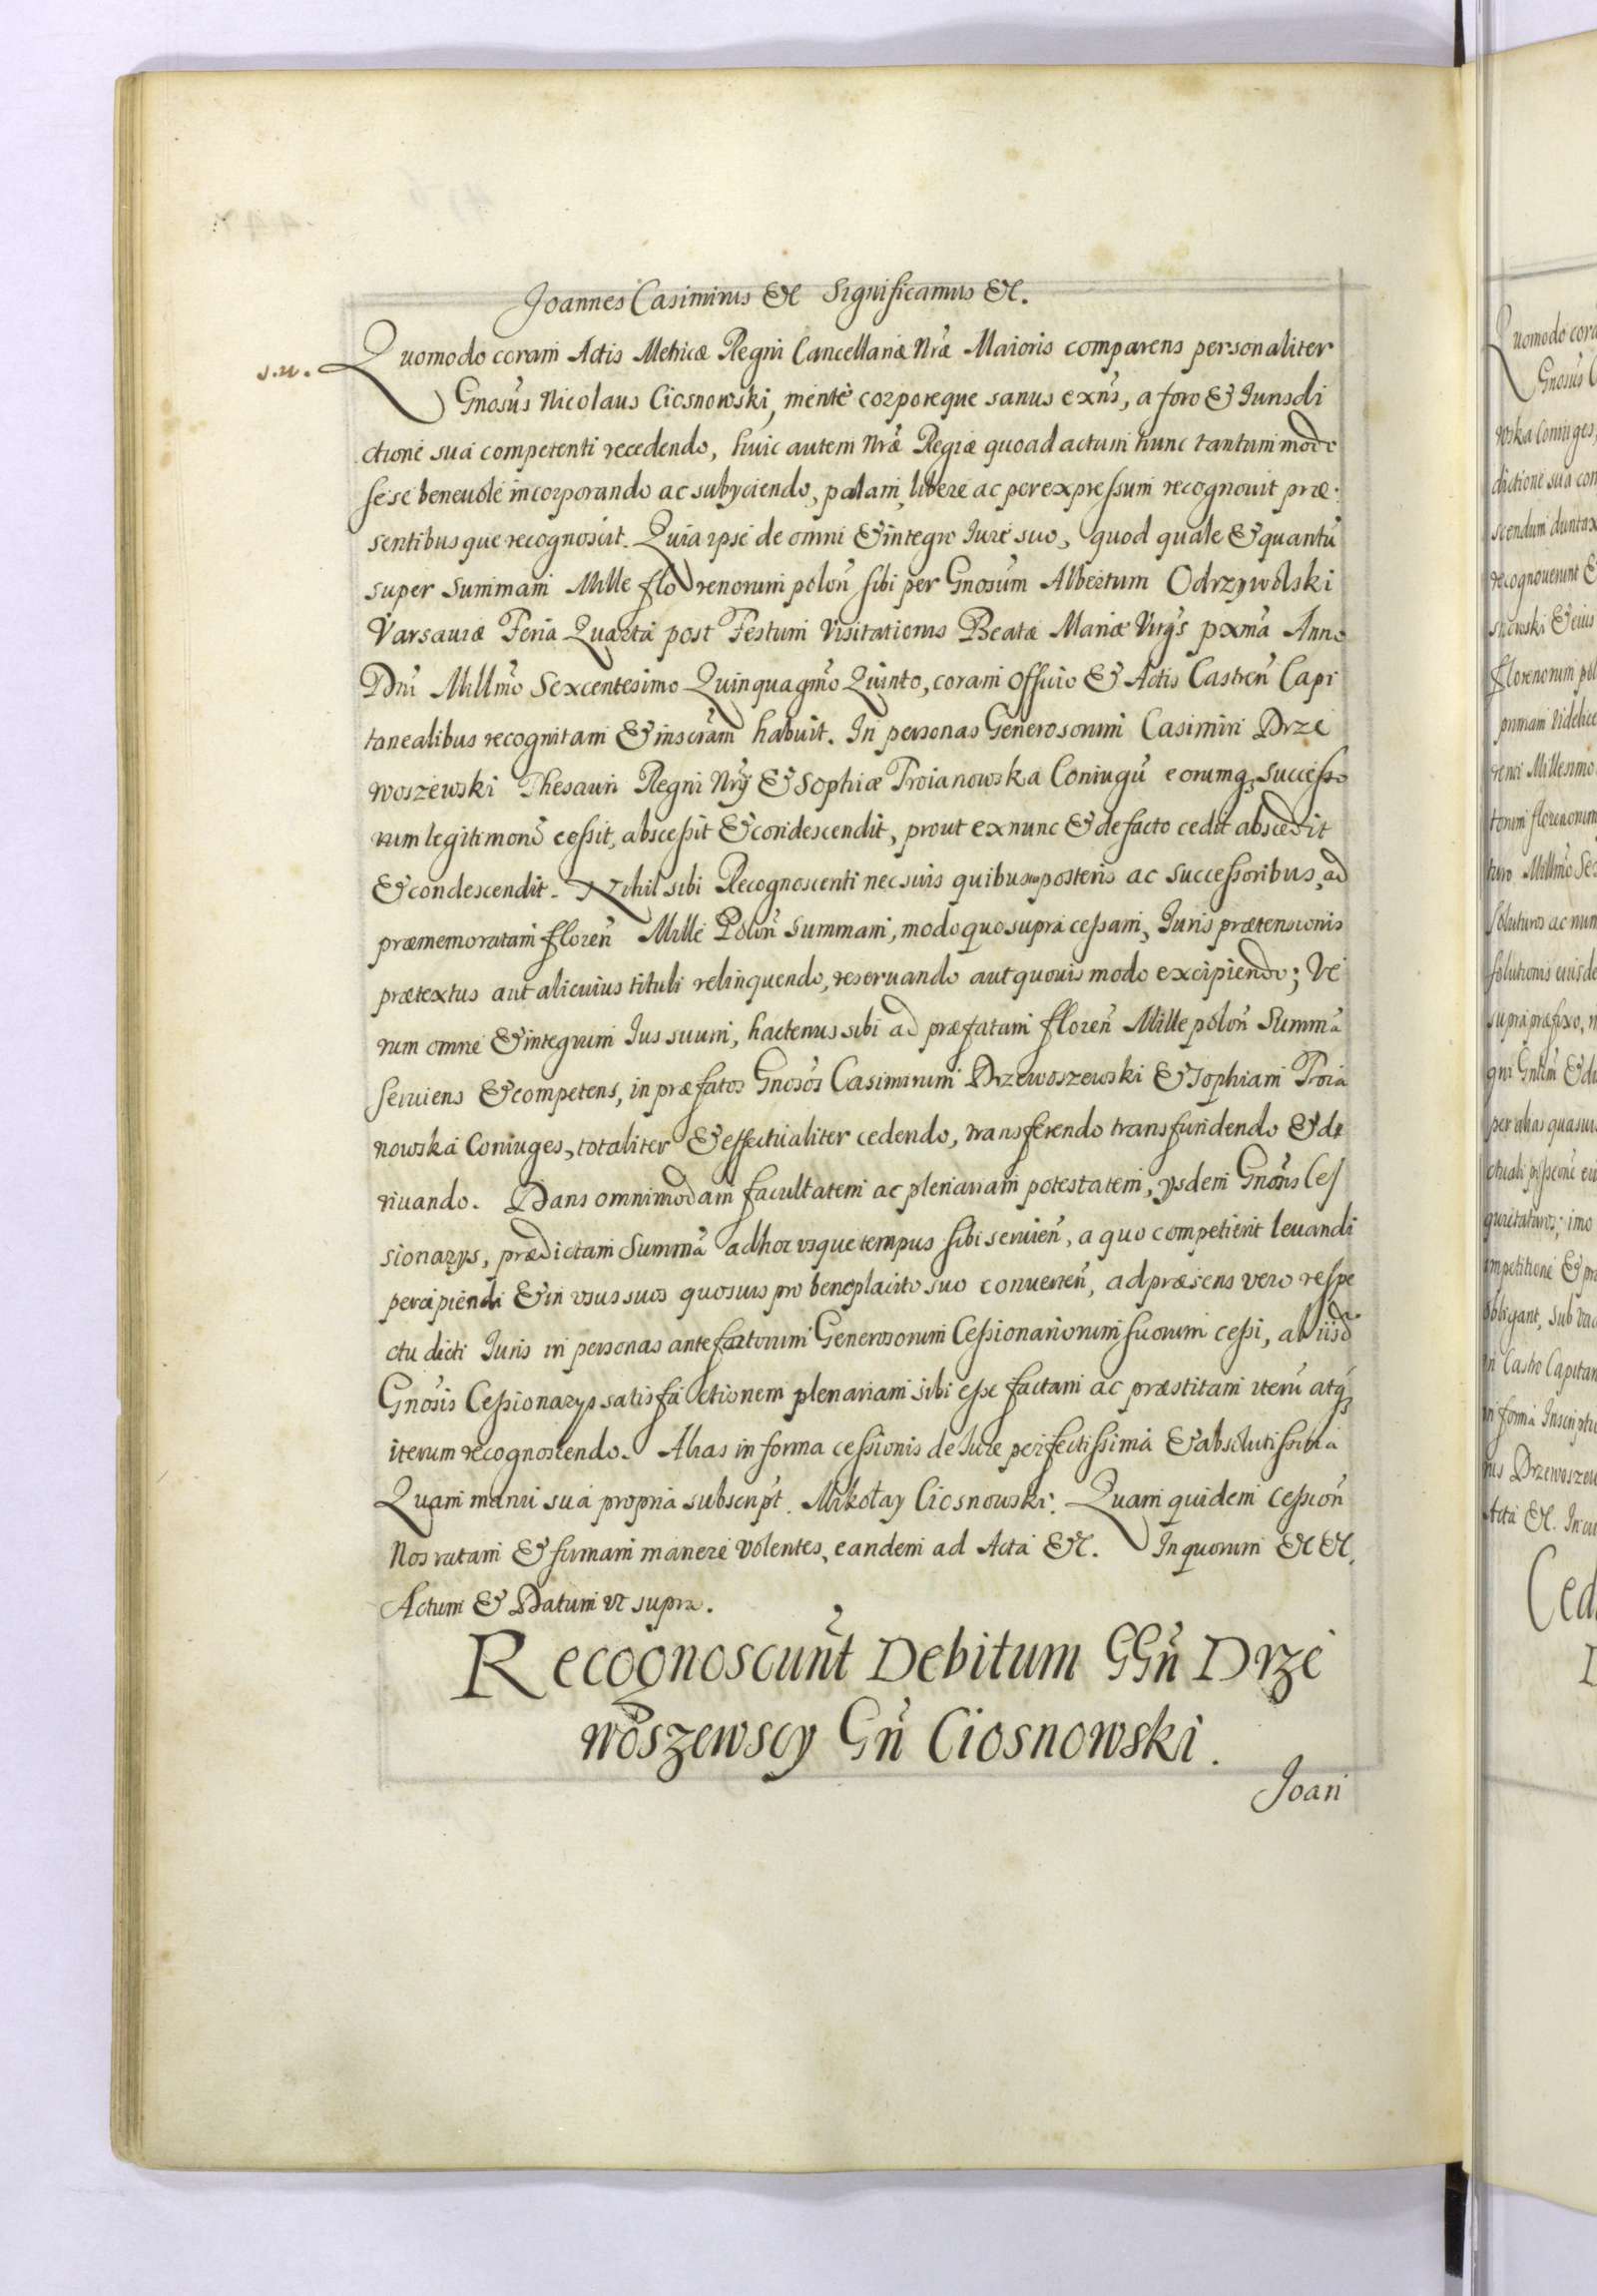 Joannes Casimirus &c Significamus &c.
s.n. Quomodo coram Actis Metricæ Regni Cancellariæ Nræ Maioris comparens personaliter
Gnosus Nicolaus Ciosnowski, mente corporeque sanus exns, a foro & Iurisdi
ctione sua competenti recedendo, huic autem Nræ Regiæ quoad actum hunc tantummodo
sese beneuole incorporando ac subyciendo, palam, libere ac per expressum recognouit præ
sentibusque recognoscit. Quia ipse de omni & integro Iure suo, quod quale & quantũ
super Summam Mille florenorum polon̄ sibi per Gnosum Albertum Odrzywolski
Varsauiæ Feria Quarta post Festum Visitationis Beatæ Mariæ Virgs pxma Anno
Dni Millmo Sexcentesimo Quinquagmo Quinto, coram officio & Actis Castren̄ Capi
tanealibus recognitam & inscram habuit. In personas Generosorum Casimiri Drze
woszewski Thesauri Regni Nry & Sophiæ Troianowska Coniugũ eorumq, successo
rum legitimorũ cessit, abscessit & condescendit, prout exnunc & de facto cedit abscedit
& condescendit. Nihil sibi Recognoscenti nec suis quibusuis posteris ac successoribus, ad
præmemoratam floren̄ Mille Polon̄ summam, modo quo supra cessam, Iuris prætensionis
prætextus aut alicuius tituli relinquendo, reseruando aut quouis modo excipiendo; Ve
rum omne & integrum Ius suum, hactenus sibi ad præfatam floren̄ Mille polon̄ Summã
seruiens & competens, in præfatos Gnosos Casimirum Drzewoszewski & Sophiam Troia
nowska Coniuges, totaliter & effectualiter cedendo, transferendo transfundendo & de
riuando. Dans omnimodam facultatem ac plenariam potestatem, ysdem Gnosis Ces
sionarys, prædictam Summã adhoc vsque tempus sibi seruien̄, a quo competierit leuandi
percipiendi & in vsus suos quosuis pro beneplacito suo conuerten̄, ad præsens vero respe
ctu dicti Iuris in personas antefactorum Generosorum Cessionariorum suorum cessi, ab iisd
Gnosis Cessionarys satisfactionem plenariam sibi esse factam ac præstitam iterũ atq
iterum recognoscendo. Alias in forma cessionis de Iure perfectissima & absolutissima
Quam manu sua propria subscript. Mikołay Ciosnowski. Quam quidem cession̄
Nos ratam & firmam manere volentes, eandem ad Acta &c. In quorum &c &c.
Actum & Datum vt supra.
Recognoscunt Debitum GGn̄ Drze
woszewscy Gn̄ Ciosnowski.
Joan